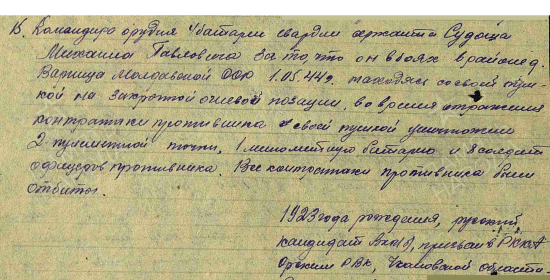 15. Командира орудия 4 батареи гвардии сержанта Судоца
Михаила Павловича за то, что он в боях в районе д.
Варница Молдавской ССР 1.05.44г. находясь со своей пуш-
кой на закрытой огневой позиции, во время отражения
контратаки противника своей пушкой уничтожил
2 пулеметной точки, 1 минометную батарею и 8 солдат
офицеров противника. Все контратаки противника были
отбиты.
1923 года рождения, русский,
кандидат ВКП(б), призван в РККА
Орским РВК Чкаловской области